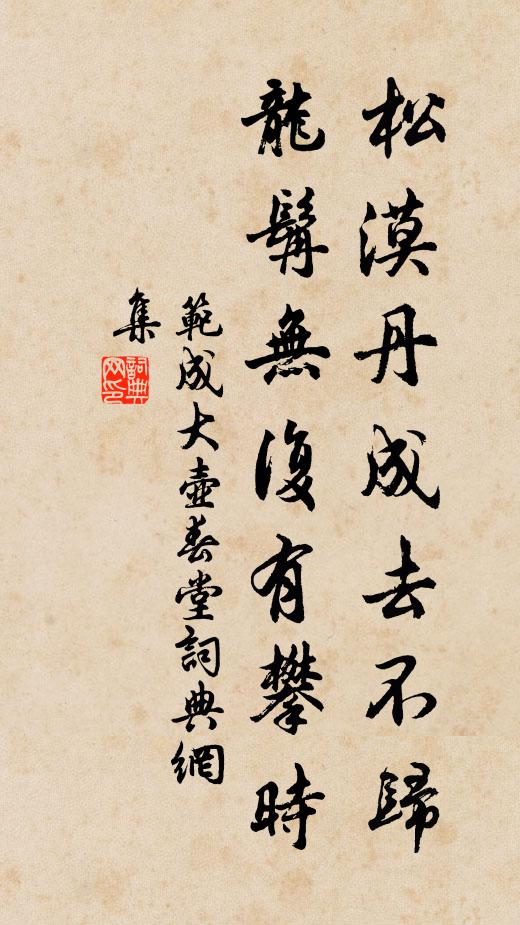 松漠丹成去不歸
龍髯無復有攀時
範成大壺春堂詞典網
集
詞典网印